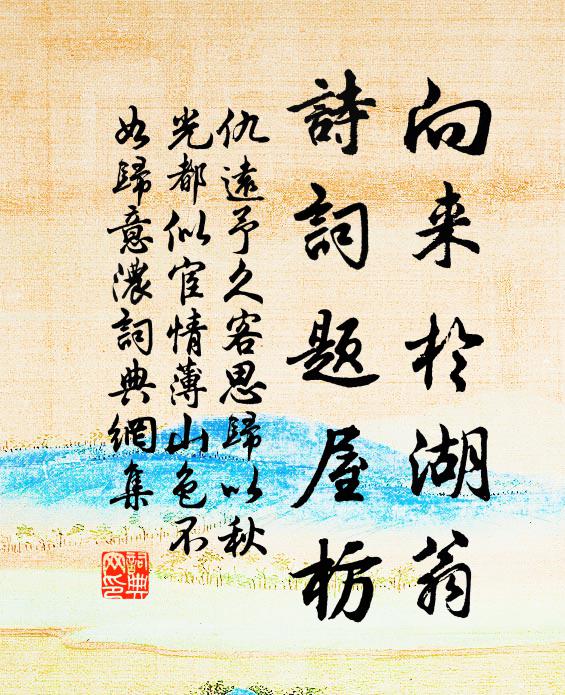 向来於湖翁
詩詞题屋枋
仇遠予久客思歸以秋
光都似宦情薄山色不
如歸意濃詞典網集
詞典
网印